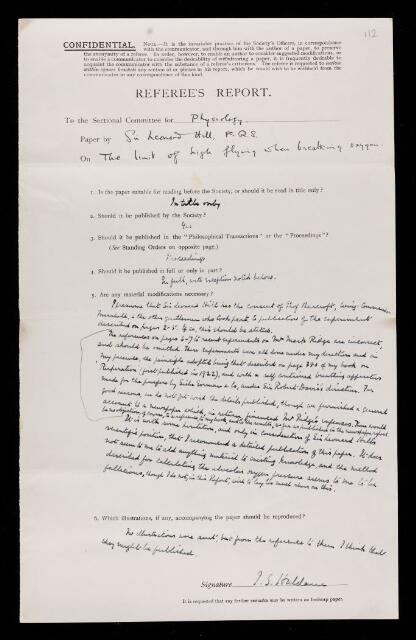 112
CONFIDENTIAL. NOTE.—It is the invariable practice of the Society's Officers, in correspondence
with the communicator, and through him with the author of a paper, to preserve
the anonymity of a referee. In order, however, to enable an author to consider suggested modifications, or
to enable a communicator to consider the desirability of withdrawing a paper, it is frequently desirable to
acquaint the communicator with the substance of a referee's criticisms. The referee is requested to enclose
within square brackets any section of or phrases in his report, which he would wish to be withheld from the
communicator in any correspondence of this kind.
REFEREE'S REPORT.
To the Sectional Committee for Physiology
Paper by Sir Leonard Hill, F.R.S.
On The limit of high flying when breathing oxygen.
1. Is the paper suitable for reading before the Society, or should it be read in title only?
In title only
2. Should it be published by the Society?
Yes
3. Should it be published in the "Philosophical Transactions" or the "Proceedings"?
(See Standing Orders on opposite page.)
Proceedings
4. Should it be published in full or only in part?
In full, with exception noted below.
5. Are any material modifications necessary?
I presume that Sir Leonard Hill has the consent of Prof Barcroft,
Marshall, & the other gentlemen who took part, to publication of the experiments
described on pages 2-5. If so, this should be stated.
The references on pages 6-7 to recent experiments on Mr Mark Ridge are incorrect,
and should be omitted. These experiments were all done under my direction and in
my presence, the principle adopted being that described on page 384 of my book on
Respiration (first published in 1922), and with a self contained breathing apparatus
made for the purpose by Siebe Gorman & Co, under Sir Robert Davis's direction. For
good reasons, we do not yet wish the details published, though we furnished a general
account to a newspaper which, in return, financed Mr Ridge's expenses. There would
be no objection, of course, to a reference to my book, and to the results, as far as published in the newspaper report.
It is with some hesitation, and only in consideration of Sir Leonard Hill's
scientific position, that I recommend a detailed publication of this paper. It does
not seem to me to add anything material to existing knowledge, and the method
described for calculating the alveolar oxygen pressure seems to me to be
fallacious, though I do not, in this Report, wish to lay too much stress on this.
6. Which illustrations, if any, accompanying the paper should be reproduced?
No illustrations were sent, but from the reference to them I think that
they might be published.
Signature J. S. Haldane
It is requested that any further remarks may be written on foolscap paper.